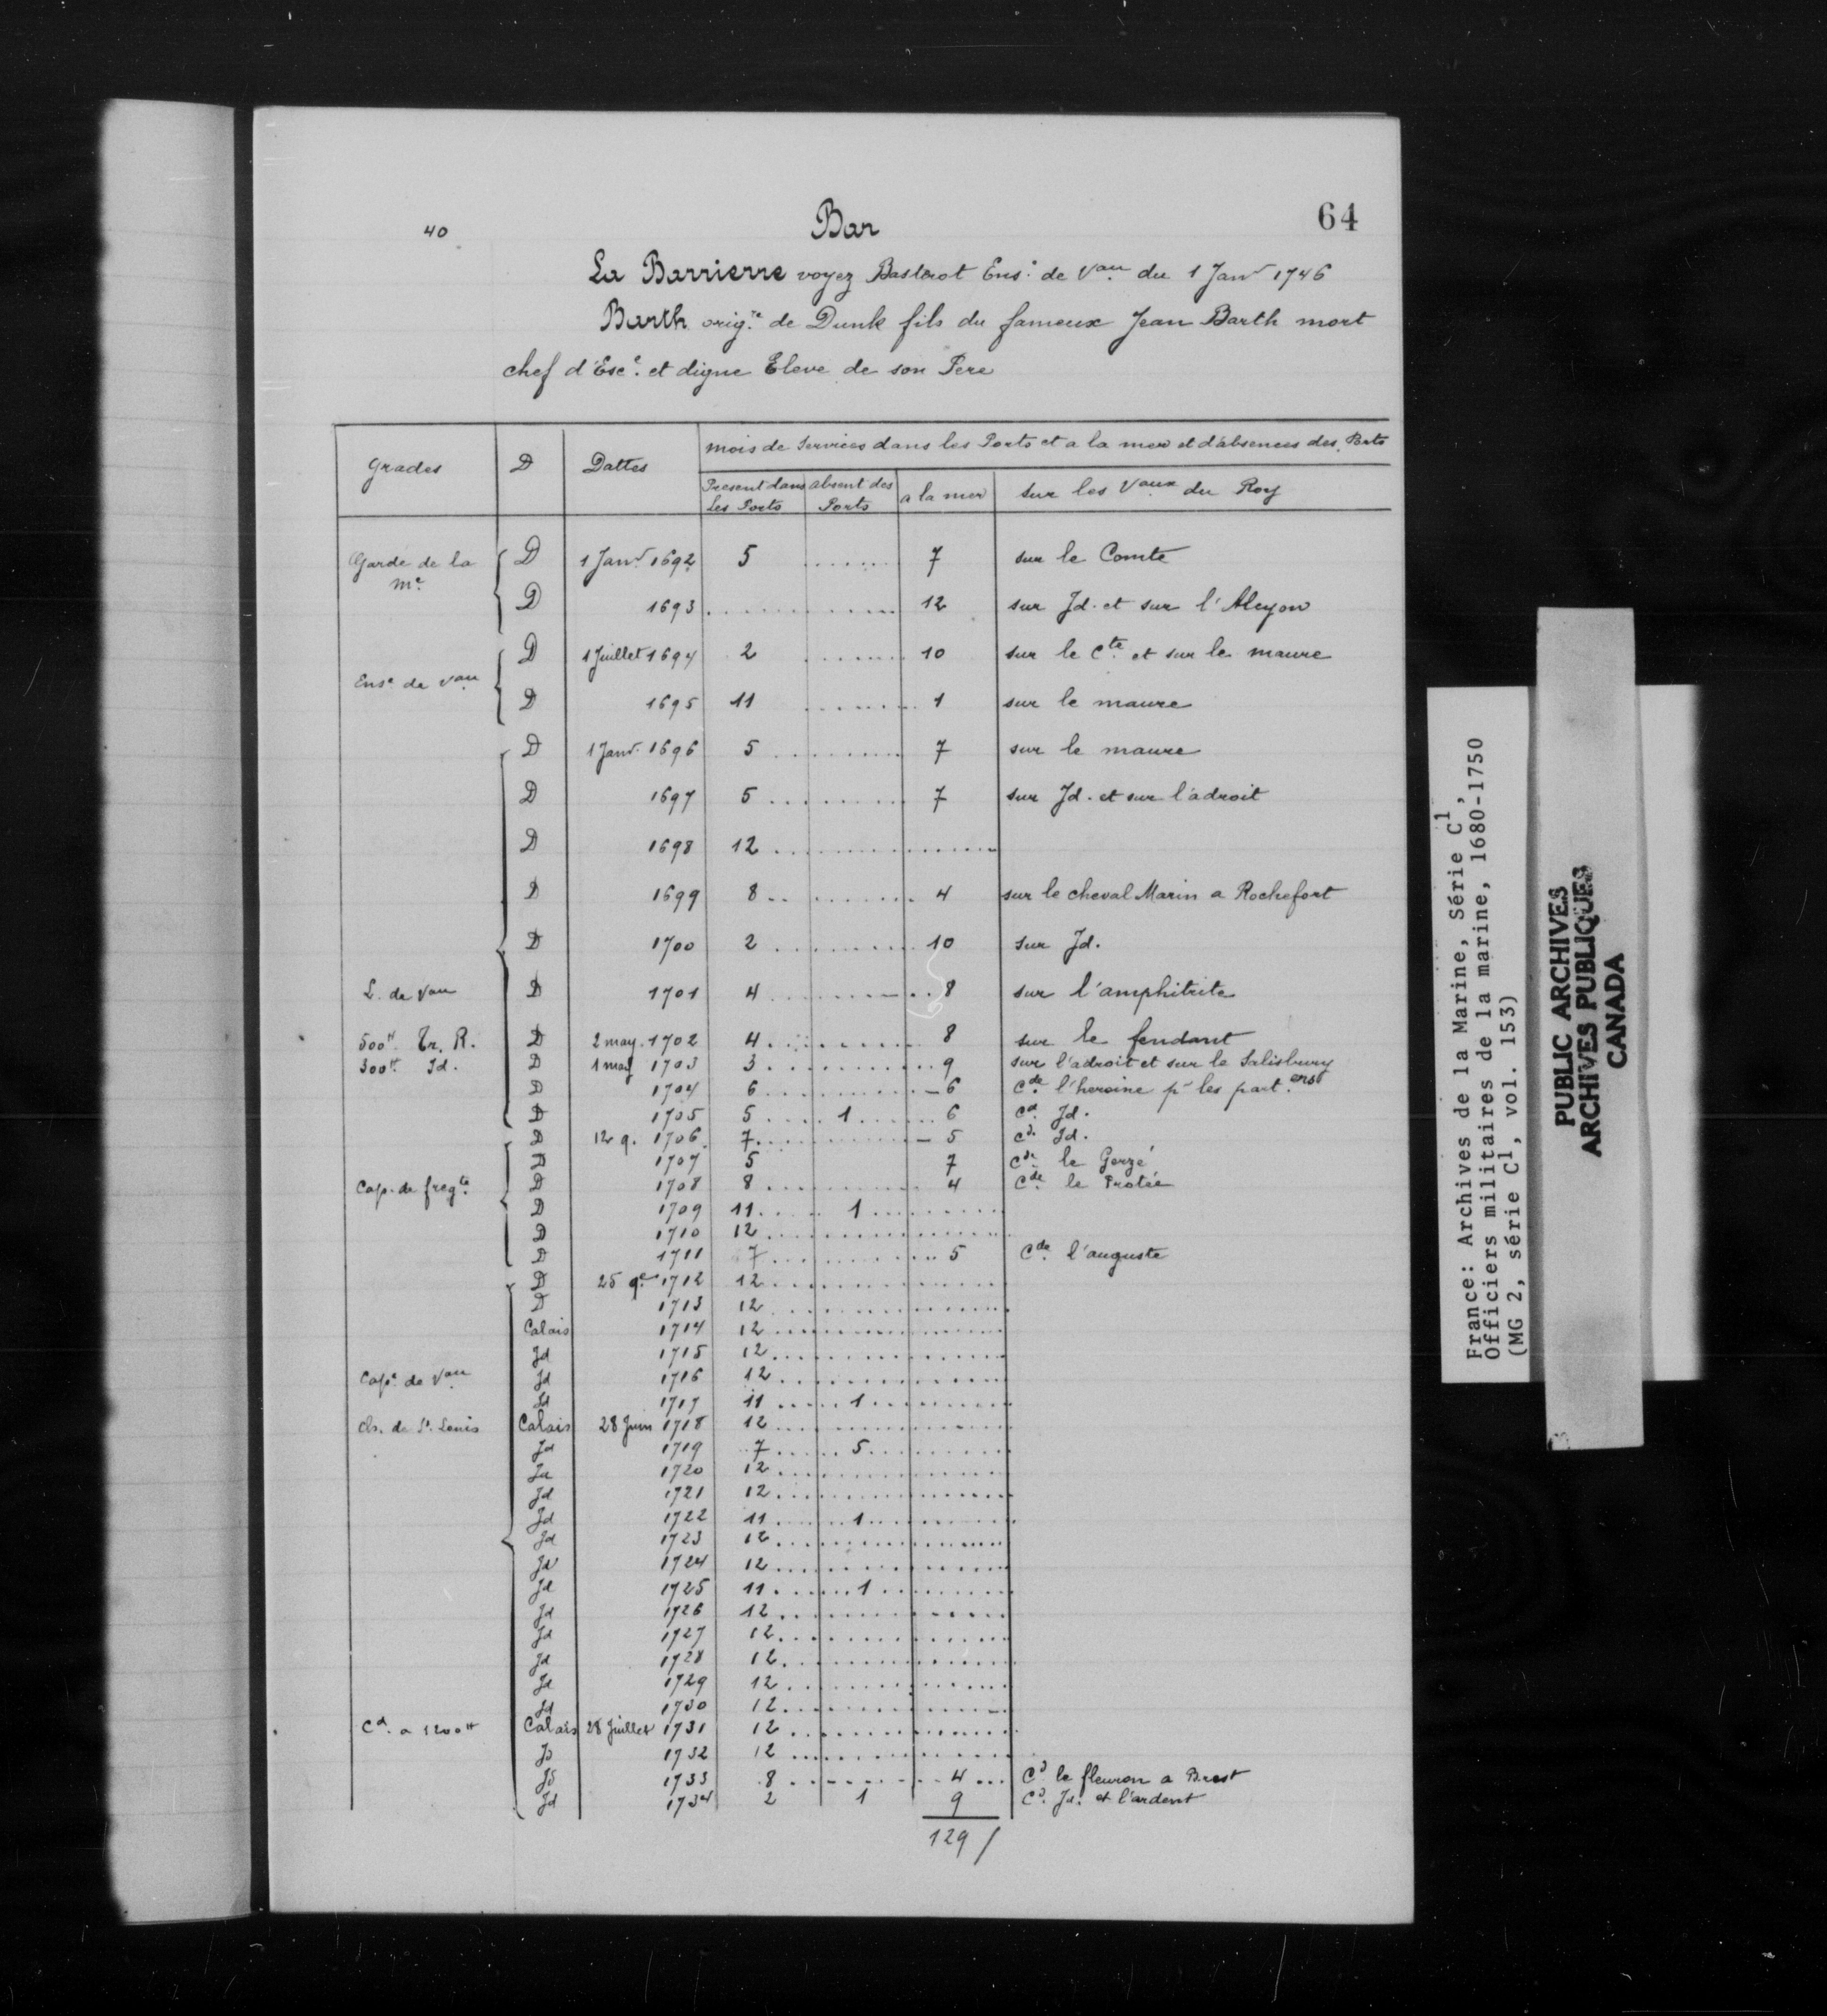 40
Bar
64
La Barrierre voyez Basterot Ens.e de Vau du 1 Janr 1746
Barth orig.re de Dunk fils du fameux Jean Barth mort
chef d'Esc.e et digne Eleve de son Pere
Grades D Dattes mois de Services dans les Ports et a la mer et d'absences des Ports
Present dans les Ports absent des Ports a la mer sur les Vaux du Roy
Garde de la me D 1 Janr 1692 5 ...... 7 sur le Comte
D 1693 ............ 12 sur Jd. et sur l'Alcyon
Ense de Vau D 1 Juillet 1694 2 ....... 10 sur le Cte et sur le maure
D 1695 11 ....... 1 sur le maure
D 1 Janr. 1696 5 ......... 7 sur le maure
D 1697 5 ......... 7 sur Jd. et sur l'adroit
D 1698 12 ...............
D 1699 8 ......... 4 sur le cheval Marin a Rochefort
D 1700 2 ......... 10 sur Jd.
L. de Vau D 1701 4 ......... 8 sur l'amphitrite
500tt Tr. R. D 2 may 1702 4 ......... 8 sur le fendant
300tt Id. D 1 may 1703 3 ......... 9 sur l'adroit et sur le Salisbury
D 1704 6 ......... 6 Cde l'heroine pr les part.ers
D 1705 5 .... 1 ..... 6 Cd Jd.
D 12 9. 1706 7 ......... 5 Cd. Id.
D 1707 5 7 Cde le Gerzé
Cap. de fregte D 1708 8 ......... 4 Cde le Protée
D 1709 11 .... 1 .......
D 1710 12 ...............
D 1711 7 ......... 5 Cde l'auguste
D 25 9e 1712 12 ...............
D 1713 12 ...............
Calais 1714 12 ...............
Jd 1715 12 ...............
Cape de Vau Jd 1716 12 ...............
Jd 1717 11 .... 1 .......
ch. de St. Louis Calais 28 Juin 1718 12 ...............
Jd 1719 7 .... 5 .......
Jd 1720 12 ...............
Jd 1721 12 ...............
Jd 1722 11 .... 1 .......
Jd 1723 12 ...............
Jd 1724 12 ...............
Jd 1725 11 .... 1 .......
Jd 1726 12 ...............
Jd 1727 12 ...............
Jd 1728 12 ...............
Jd 1729 12 ...............
Jd 1730 12 ...............
Cd. a 1200tt Calais 28 Juillet 1731 12 ...............
Jd 1732 12 ...............
Jd 1733 8 ......... 4 ... Cd le fleuron a Brest
Jd 1734 2 1 9 Cd. Jd. et l'ardent
129 /
France: Archives de la Marine, Série C1,
Officiers militaires de la marine, 1680-1750
(MG 2, série C1, vol. 153)
PUBLIC ARCHIVES
ARCHIVES PUBLIQUES
CANADA